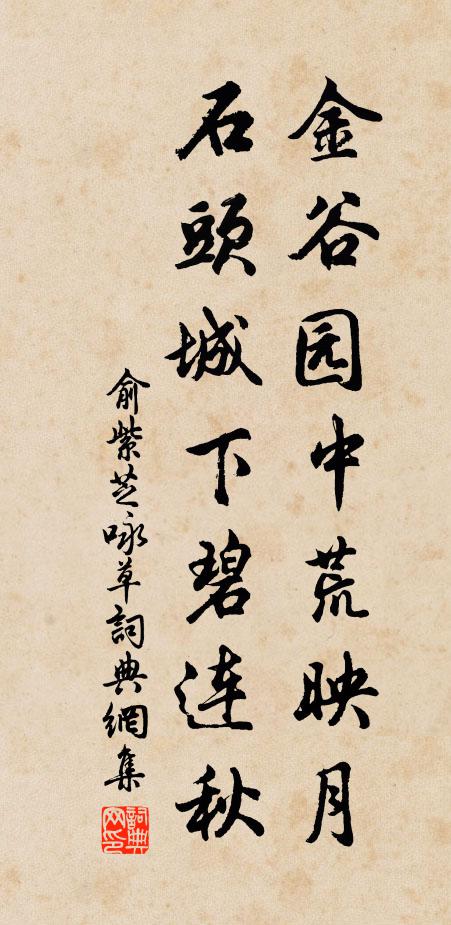 金谷园中荒映月
石頭城下碧连秋
俞紫芝咏草詞典網集
詞典网印